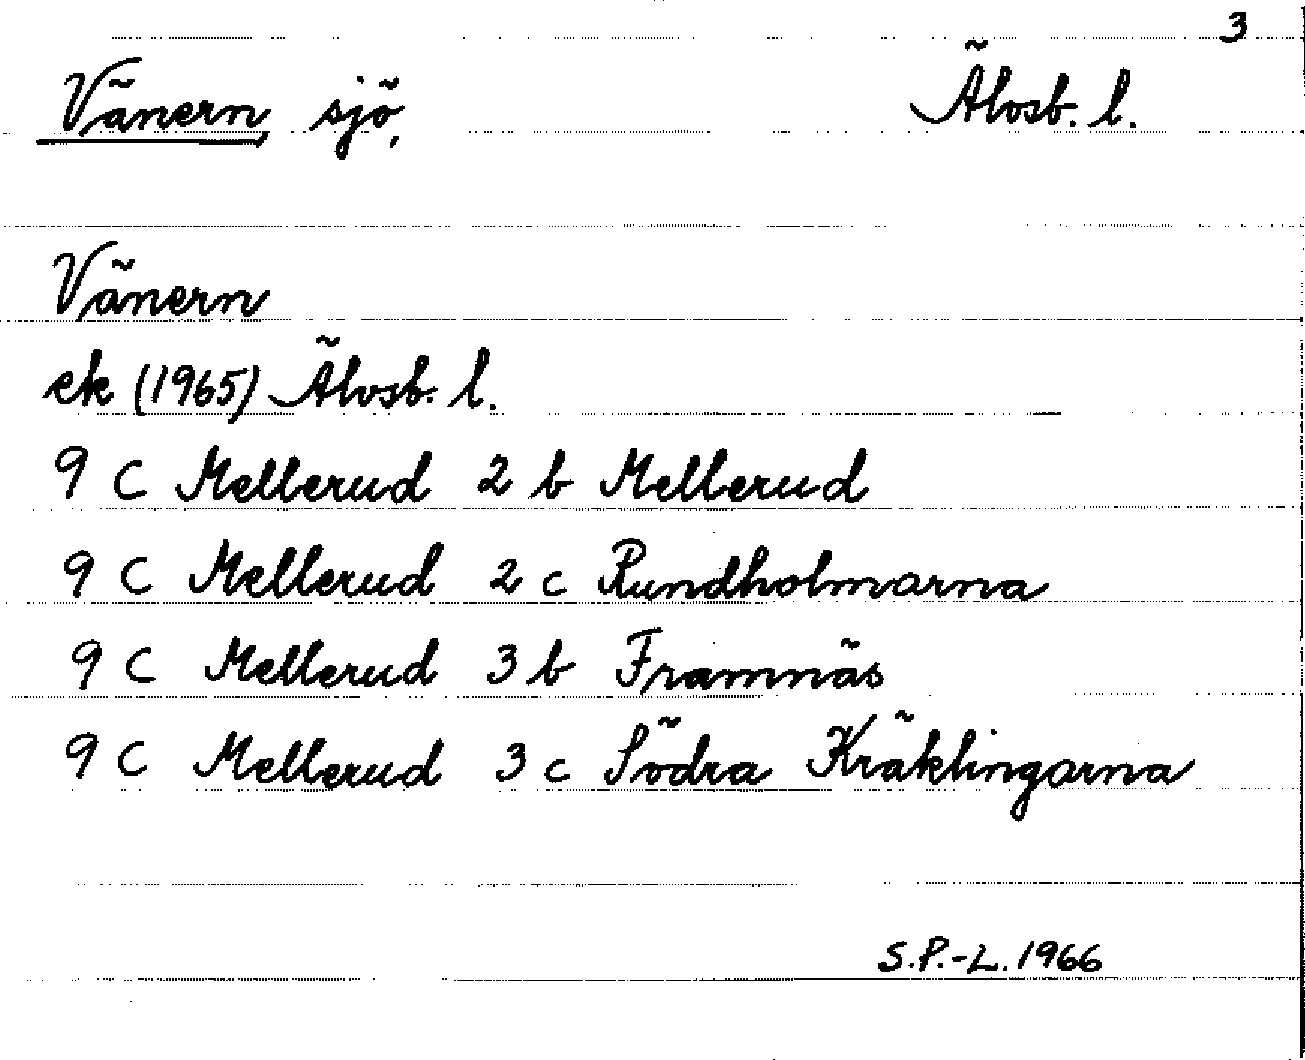 3
Vänern, sjö, Älvsb. l.
Vänern
ek (1965) Älvsb. l.
9 C Mellerud 2 b Mellerud
9 C Mellerud 2 c Rundholmarna
9 C Mellerud 3 b Framnäs
9 C Mellerud 3 c Södra Kräklingarna
S.P.-L. 1966